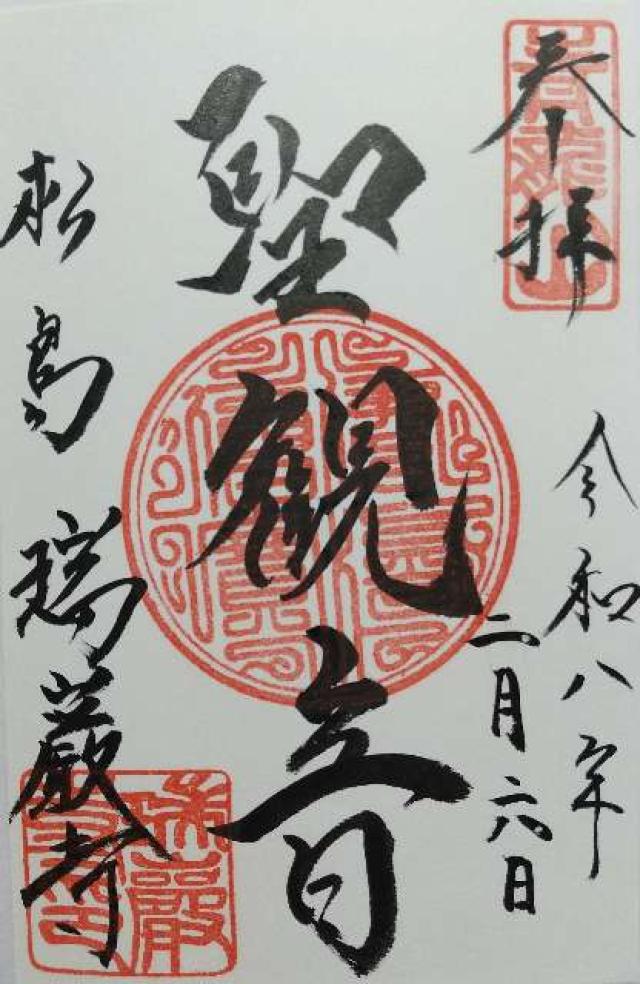 奉拝
令和八年
二月六日
聖観音
松島瑞巌寺